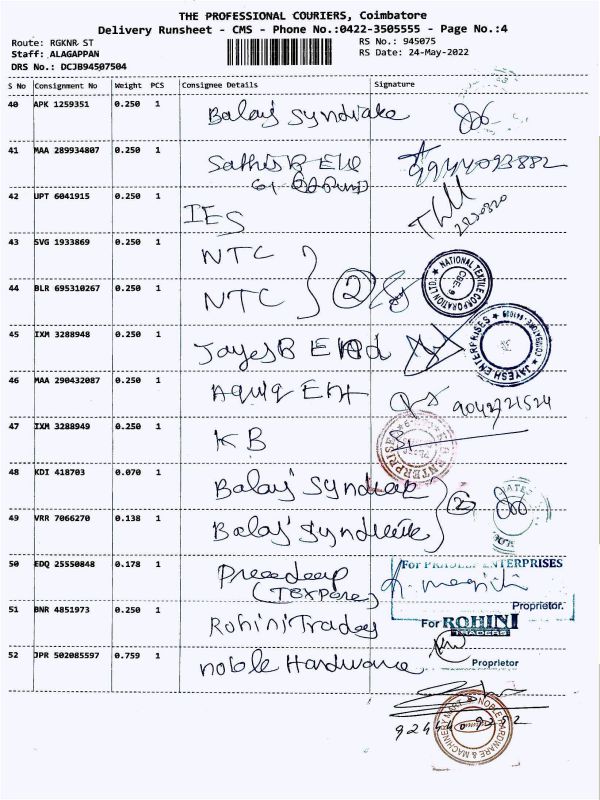 THE PROFESSIONAL COURIERS, Coimbatore
Delivery Runsheet - CMS - Phone No.:0422-3505555 - Page No.:4
Route: RGKNR ST
RS No.: 945075
Staff: ALAGAPPAN
RS Date: 24-May-2022
DRS No.: DCJB94507504
S No Consignment No Weight PCS Consignee Details Signature
40 APK 1259351 0.250 1 Balaji Syndicate
41 MAA 289934807 0.250 1 9944093882
42 UPT 6041915 0.250 1 IES
43 SVG 1933869 0.250 1 NTC
NATIONAL TEXTILE CORPORATION LTD.
CBE-9
44 BLR 695310267 0.250 1 NTC 2
45 IXM 3288948 0.250 1 JAYESH ENTERPRISES
46 MAA 290432087 0.250 1 9042721524
47 IXM 3288949 0.250 1 KB
ENTERPRISES
48 KDI 418703 0.070 1 Balaji Syndicate 2
49 VRR 7066270 0.138 1 Balaji Syndicate
50 EDQ 25550848 0.178 1 Pradeep
For PRADEEP ENTERPRISES
Proprietor.
51 BNR 4851973 0.250 1 Rohini Traders
For ROHINI
TRADERS
Proprietor
52 JPR 502085597 0.759 1 Noble Hardware
NOBLE HARDWARE & MACHINERY MART